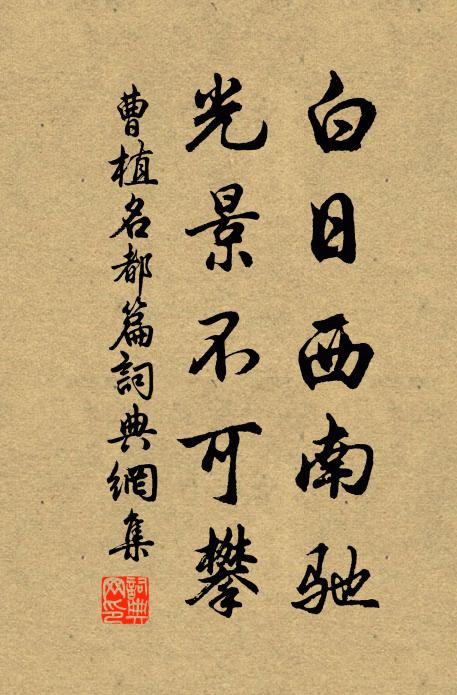 白日西南驰
光景不可攀
曹植名都篇詞典網集
詞典网印